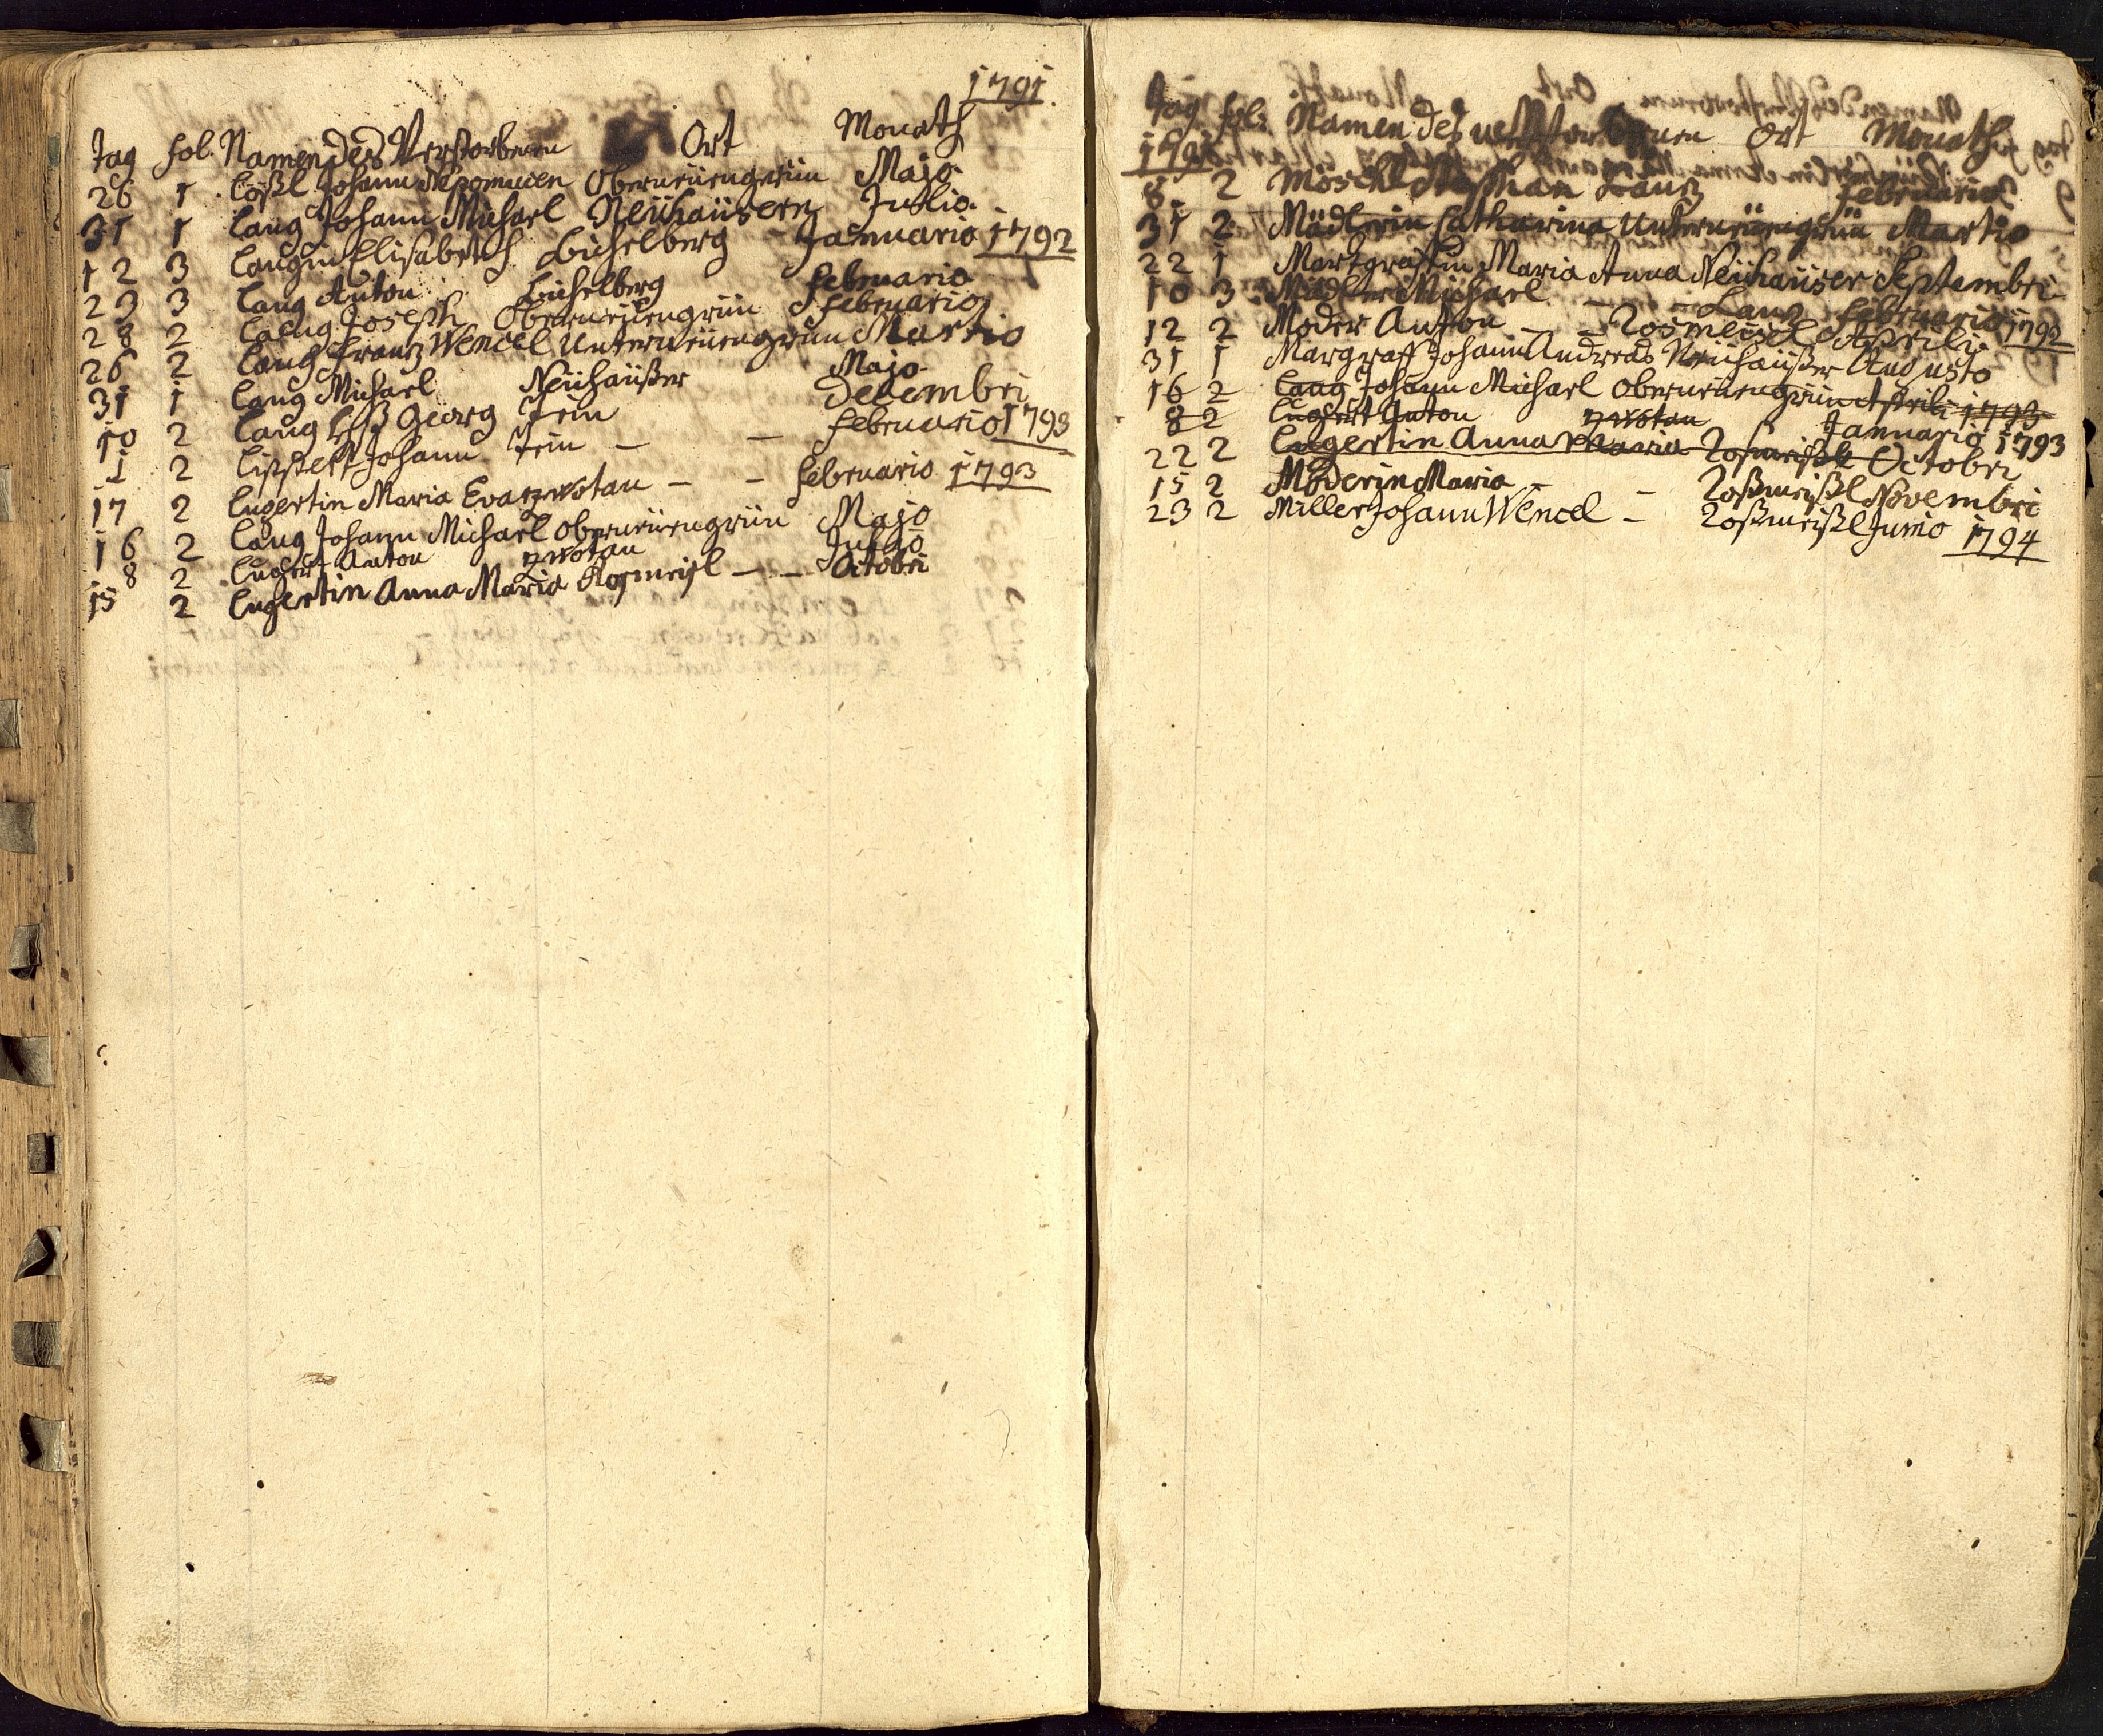 1791.
Tag fol. Namen des Verstorbenen Ort Monath
26 1 Lößl Johann Nepomucen Oberneuengrün Majo
31 1 Lang Johann Michael Neühaüsern Julio.
12 3 Langin Elisabeth Eichelberg Januario 1792
23 3 Lang Anton Eichelberg Februario
28 2 Lang Joseph Oberneüengrün Februario
26 2 Lang Franz Wencel Unterneüengrün Martio
31 1 Lang Michael Neühaüßer Majo
10 2 Lang Georg Decembri
1 2 Lippert Johann — — Februario 1793
17 2 Lugertin Maria Eva zwotau — — Februario 1793
16 2 Lang Johann Michael Oberneüengrün Majo
8 2 Lugert Anton zwotau Julio
15 2 Lugertin Anna Maria Rosmeisl — — Octobri
Tag fol: Namen des verstorbenen Ort Monath
8. 2 Möschl Lanz Februario
31 2 Mädlerin Catharina Unterneüengrün Martio
22 1 Markgraffin Maria Anna Neühaüser Septembri
10 3 Mädler Michael — Lanz Februario 1792
12 2 Moder Anton — — Rosmeisel Aprili
31 1 Margraff Johann Andreas Neühaüßer Augusto
16 2 Lang Johann Michael Oberneüengrün Aprili 1793
8 2 Lugert Anton zwotau Januario 1793
22 2 Lugertin Anna Maria Rosmeißl Octobri
15 2 Moderin Maria — — Roßmeißl Novembri
23 2 Miller Johann Wencel — Roßmeißl Junio 1794